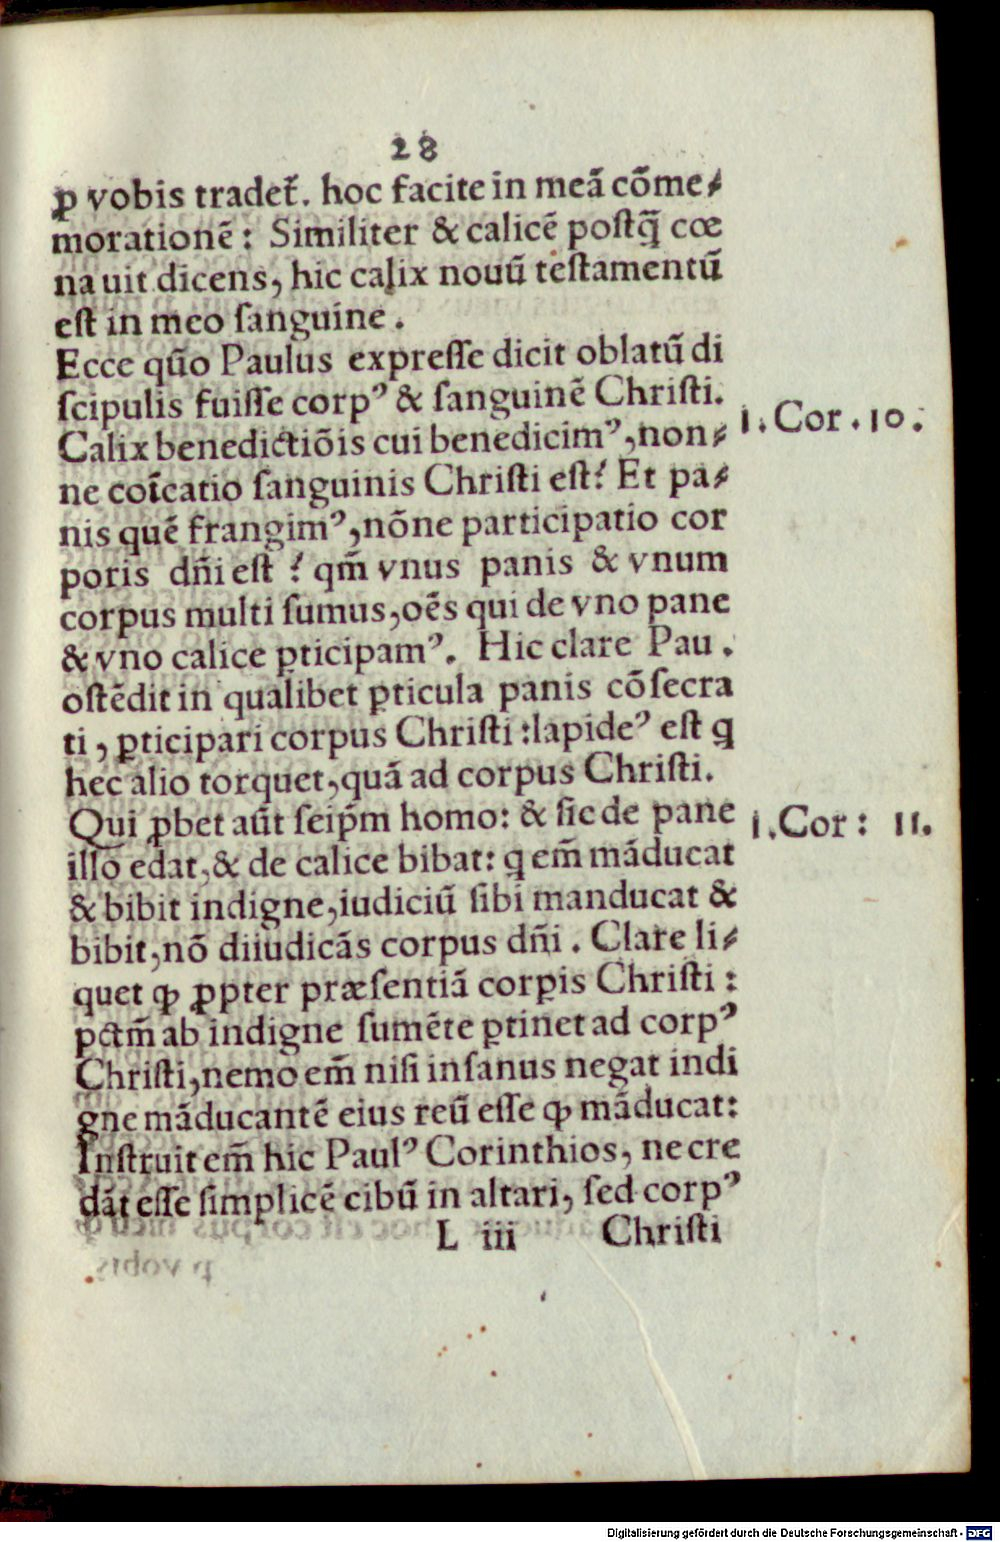 28
ꝓ vobis tradet᷑. hoc facite in meā cōme⸗
morationē: Similiter & calicē postq̄ cœ
na uit dicens, hic calix nouū testamentū
est in meo sanguine.
Ecce quō Paulus expresse dicit oblatū di
scipulis fuisse corpꝰ & sanguinē Christi.
1. Cor. 10.
Calix benedictiōis cui benedicimꝰ, non⸗
ne coīcatio sanguinis Christi est? Et pa⸗
nis quē frangimꝰ, nōne participatio cor
poris dn̄i est? qm̄ vnus panis & vnum
corpus multi sumus, oēs qui de vno pane
& vno calice ꝑticipamꝰ. Hic clare Pau.
ostēdit in qualibet ꝑticula panis cōsecra
ti, ꝑticipari corpus Christi: lapideꝰ est q
hec alio torquet, quā ad corpus Christi.
Qui ꝓbet aūt seip̄m homo: & sic de pane
1. Cor: 11.
illo edat, & de calice bibat: q em̄ māducat
& bibit indigne, iudiciū sibi manducat &
bibit, nō diiudicās corpus dn̄i. Clare li⸗
quet ꝙ ꝓpter præsentiā corꝑis Christi:
pctm̄ ab indigne sumēte ꝑtinet ad corpꝰ
Christi, nemo em̄ nisi insanus negat indi
gne māducantē eius reū esse ꝙ māducat:
Instruit em̄ hic Paulꝰ Corinthios, ne cre
dāt esse simplicē cibū in altari, sed corpꝰ
L iii Christi
Digitalisierung gefördert durch die Deutsche Forschungsgemeinschaft - DFG